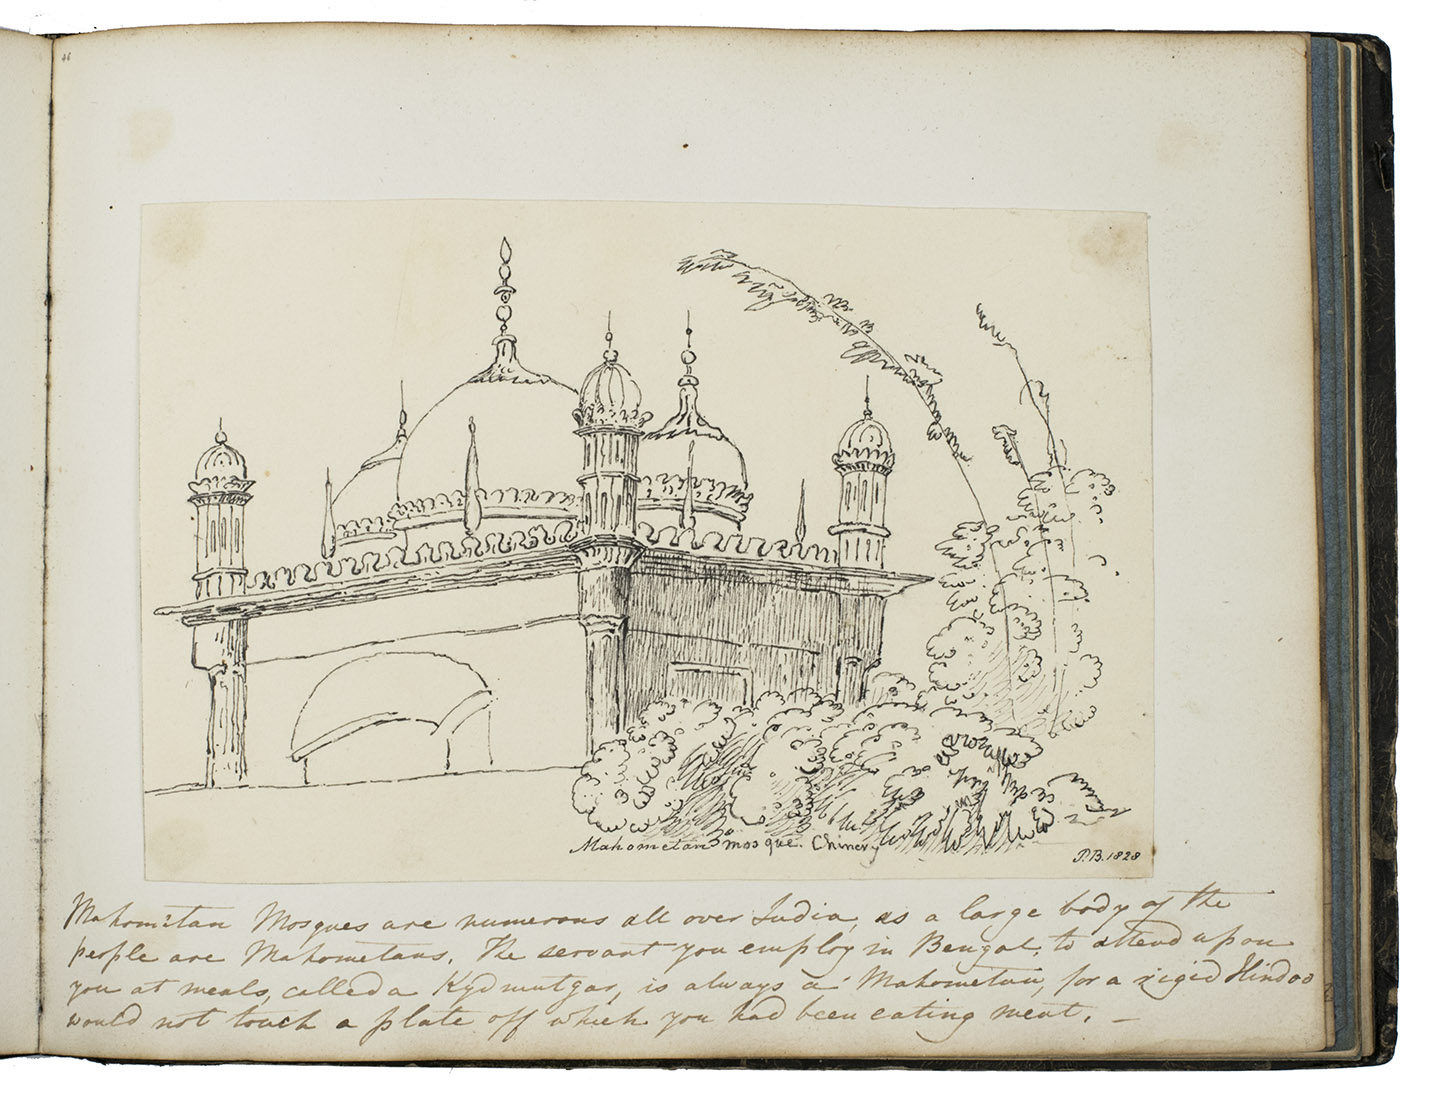 46
Mahometan Mosque. Chinery
P.B. 1828
Mahometan Mosques are numerous all over India, as a large body of the
people are Mahometans. The servant you employ in Bengal, to attend upon
you at meals, called a Kydmutgar, is always a Mahometan, for a rigid Hindoo
would not touch a plate off which you had been eating meat. —